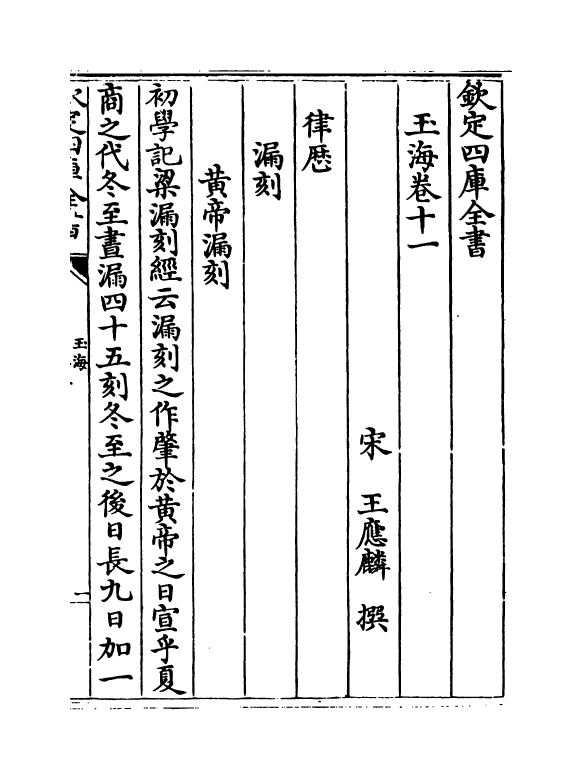 欽定四庫全書
玉海卷十一
宋 王應麟 撰
律厯
漏刻
黄帝漏刻
初學記梁漏刻經云漏刻之作肇於黄帝之日宣乎夏
商之代冬至晝漏四十五刻冬至之後日長九日加一
欽定四庫全書
玉海